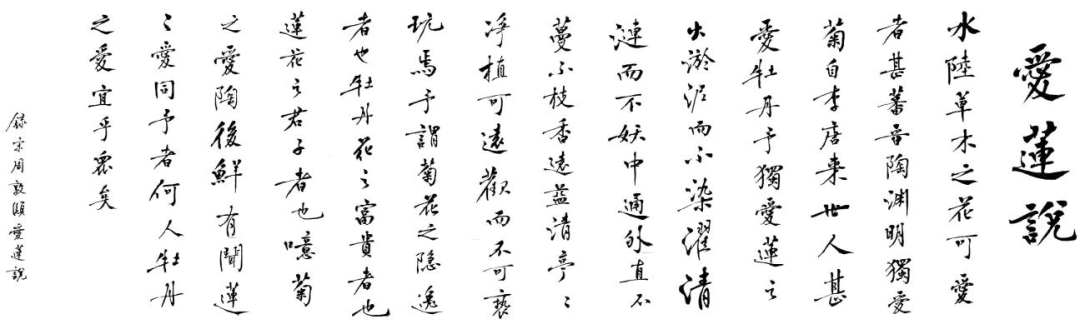 愛蓮說
水陸草木之花可愛
者甚蕃晉陶渊明獨愛
菊自李唐来世人甚
愛牡丹予獨愛蓮之
出淤泥而不染濯清
漣而不妖中通外直不
蔓不枝香遠益清亭〻
淨植可遠觀而不可褻
玩焉予謂菊花之隐逸
者也牡丹花之富貴者也
蓮花之君子者也噫菊
之愛陶後鮮有聞蓮
〻愛同予者何人牡丹
之愛宜乎衆矣
録宋周敦頤愛蓮說